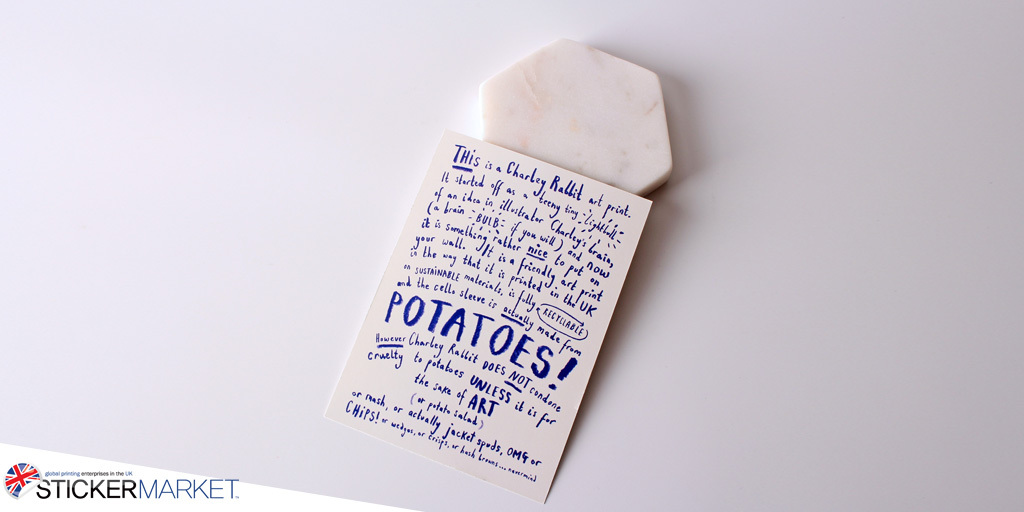 THis is a Charley Rabbit art print.
It started off as a teeny tiny Lightbulb
of an idea in illustrator Charley's brain,
(a brain BULB if you will) and now
it is something rather nice to put on
your wall. It is a friendly art print
in the way that it is printed in the UK
on SUSTAINABLE materials, is fully RECYCLABLE
and the cello sleeve is actually made from
POTATOES!
However Charley Rabbit DOES NOT condone
cruelty to potatoes UNLESS it is for
the sake of ART
(or potato salad)
or mash, or actually jacket spuds, OMG or
CHiPS! or wedges, or crisps, or hash browns... nevermind
global printing enterprises in the UK
STICKERMARKET.